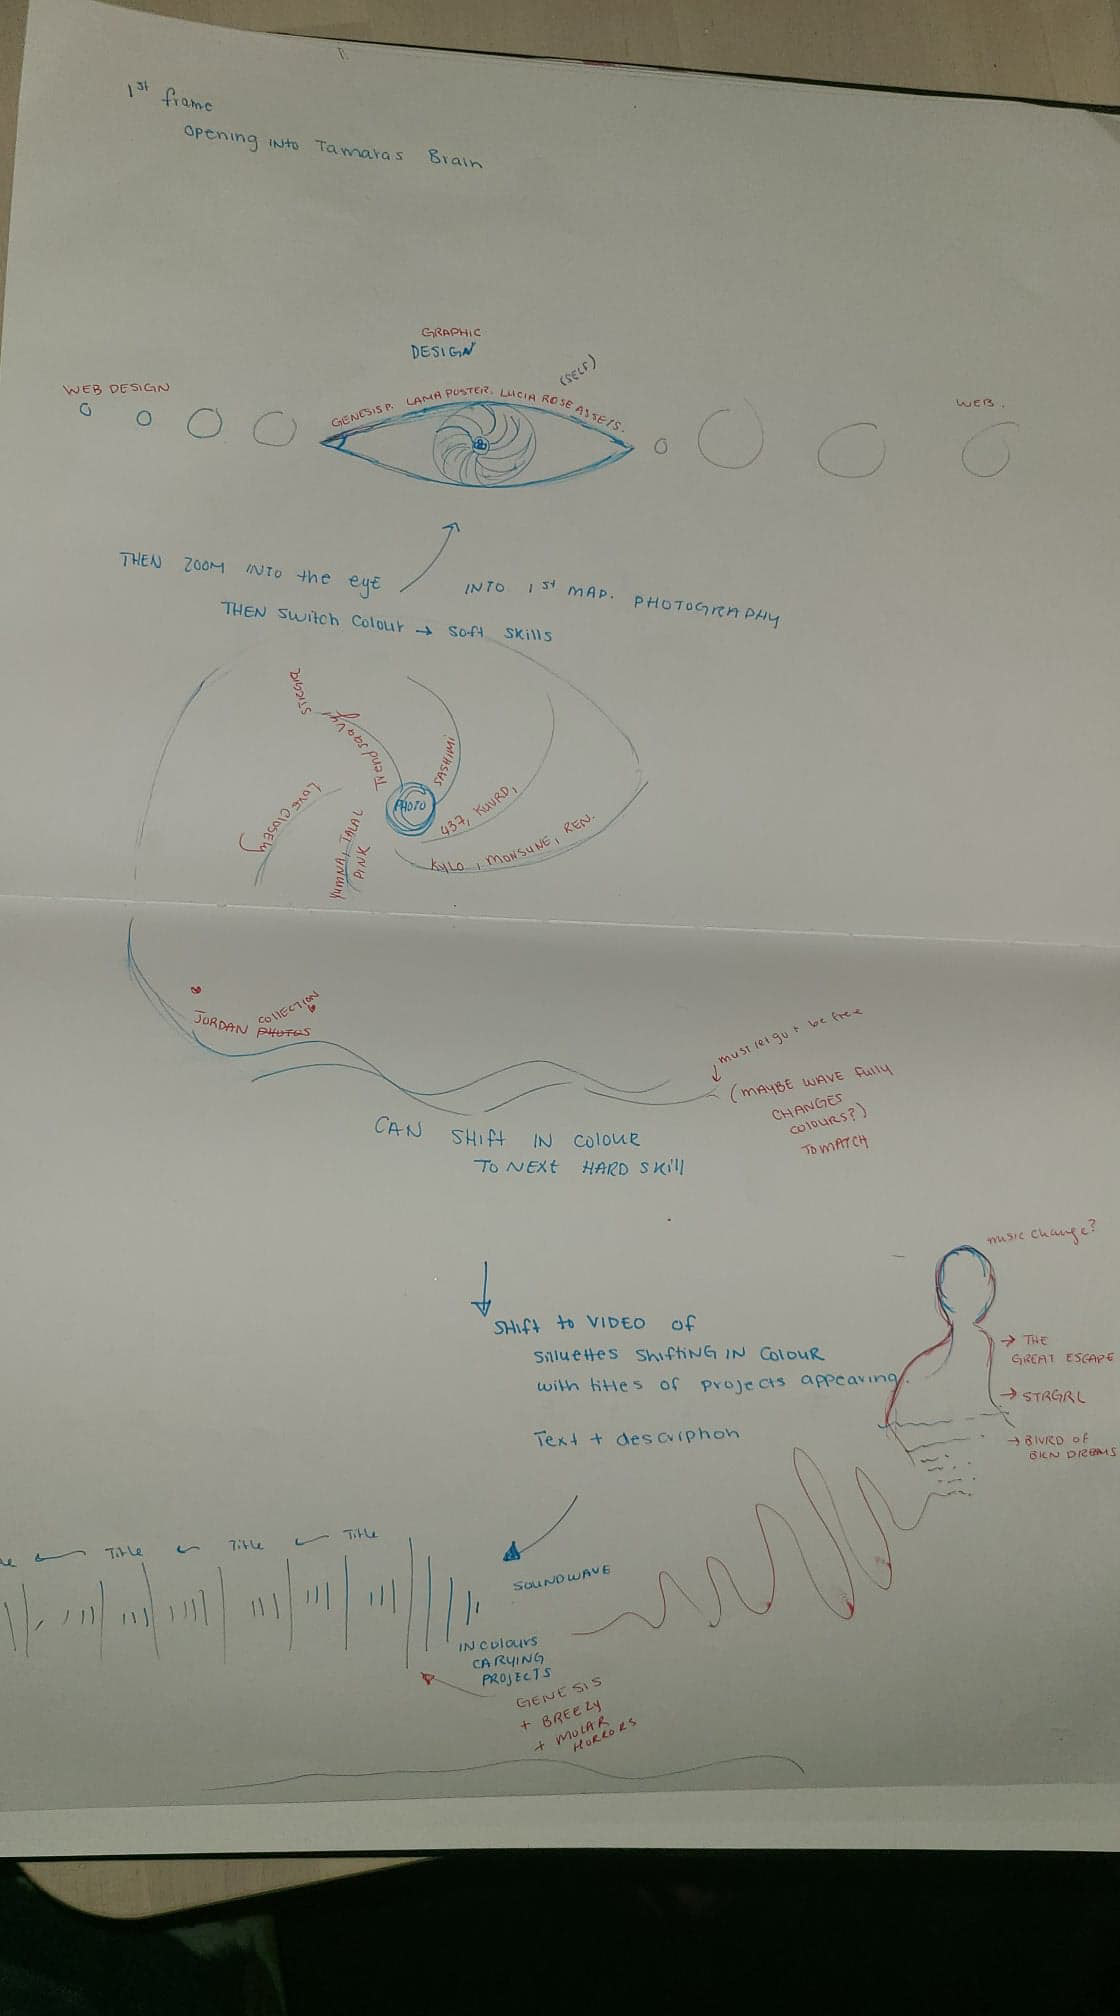 1st frame
opening INto Tamaras Brain
GRAPHIC
DESIGN
(SELF)
WEB DESIGN
GENESIS P. LAMA POSTER. LUCIA ROSE ASSETS.
WEB.
THEN ZOOM INTO the eyE
INTO 1st MAP. PHOTOGRAPHY
THEN Switch Colour → soft skills
Trend saavy
SASHIMI
PHOTO
437, KUURD,
KYLO, MONSUNE, REN.
Love closely
YUMNA, JALAL
PINK
JORDAN COLLECTION
PHOTOS
must let go + be free
(MAYBE WAVE fully
CHANGES
COLOURS?)
TO MATCH
CAN SHift IN COLOUR
TO NEXt HARD SKill
music change?
SHift to VIDEO of
Silluettes ShiftiNG IN COLOUR
with titles of projects appearing.
Text + description
→ THE
GREAT ESCAPE
→ STRGRL
→ BLVRD OF
BKN DREAMS
Title
Title
Title
SOUNDWAVE
IN colours
CARYING
PROJECTS
GENESIS
+ BREEZY
+ MOLAR
HORRORS